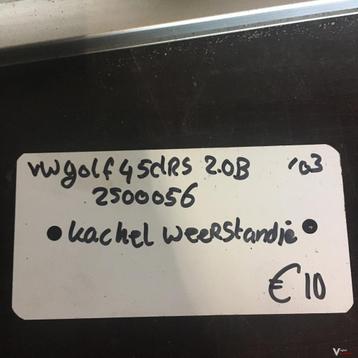 VW golf 4 5dRS 2.0B '03
2500056
• kachel weerstandje •
€ 10